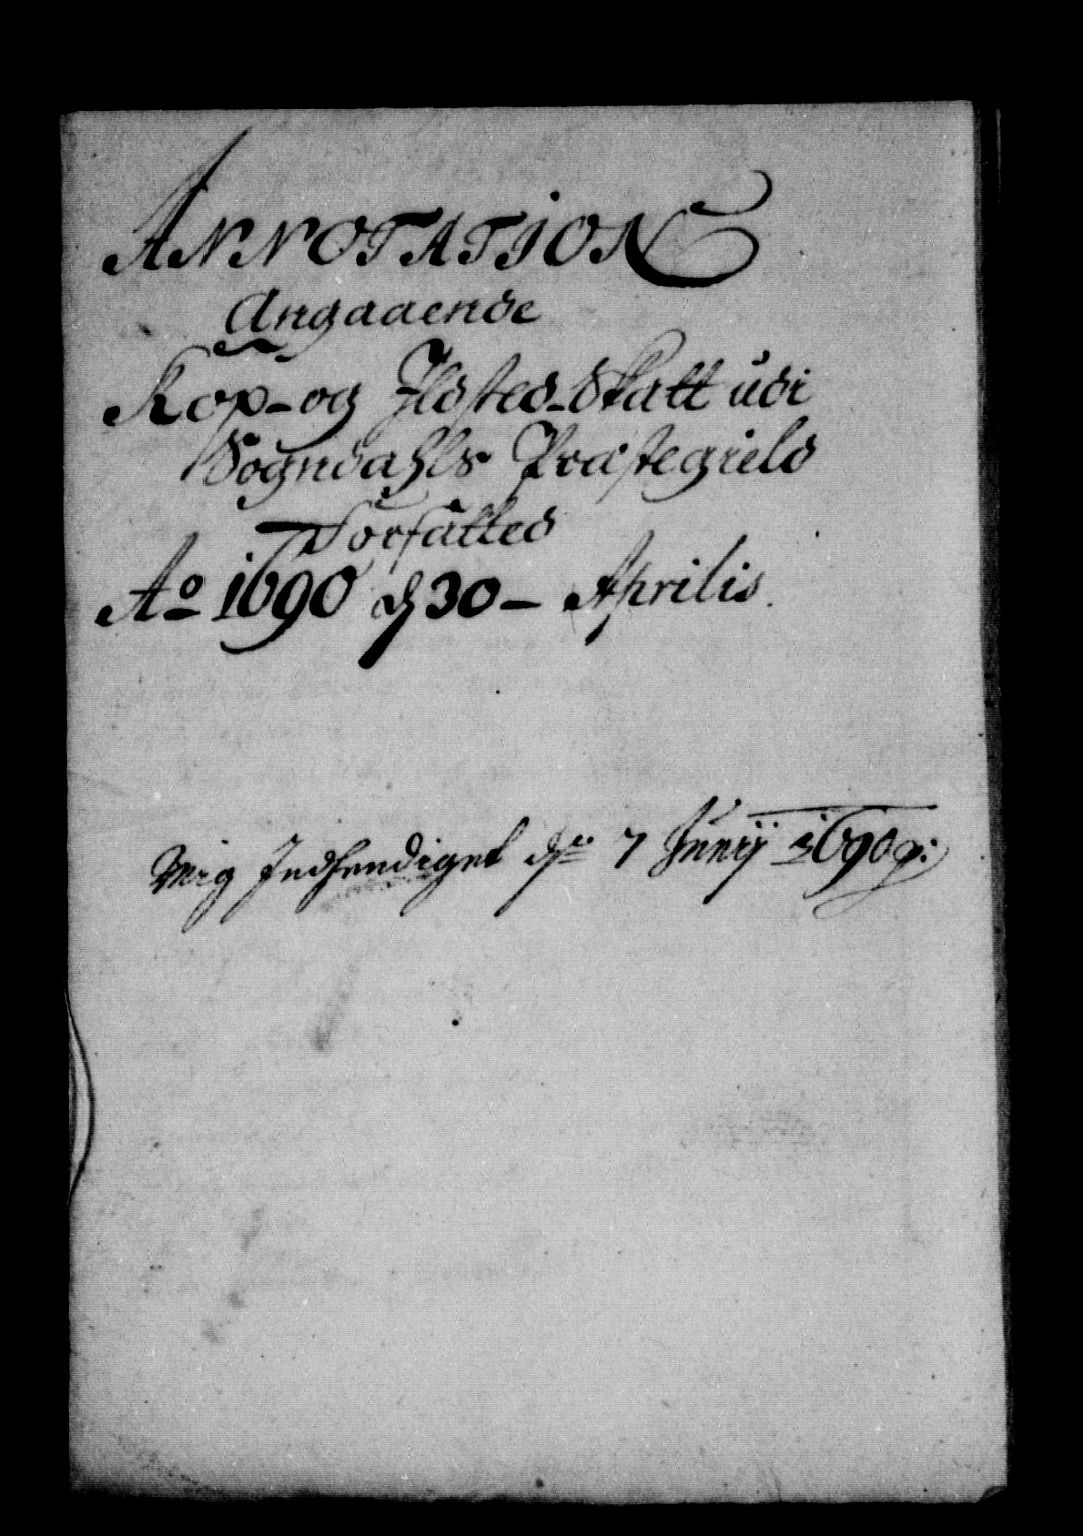 ANNOTATION
Angaaende
Kop-og Ildsted-Skatt udi
Sogndahls Præstegield
Forfatted
Ao 1690 d 30 - Aprilis.
Mig Indhendiget den 7 Junij 1690